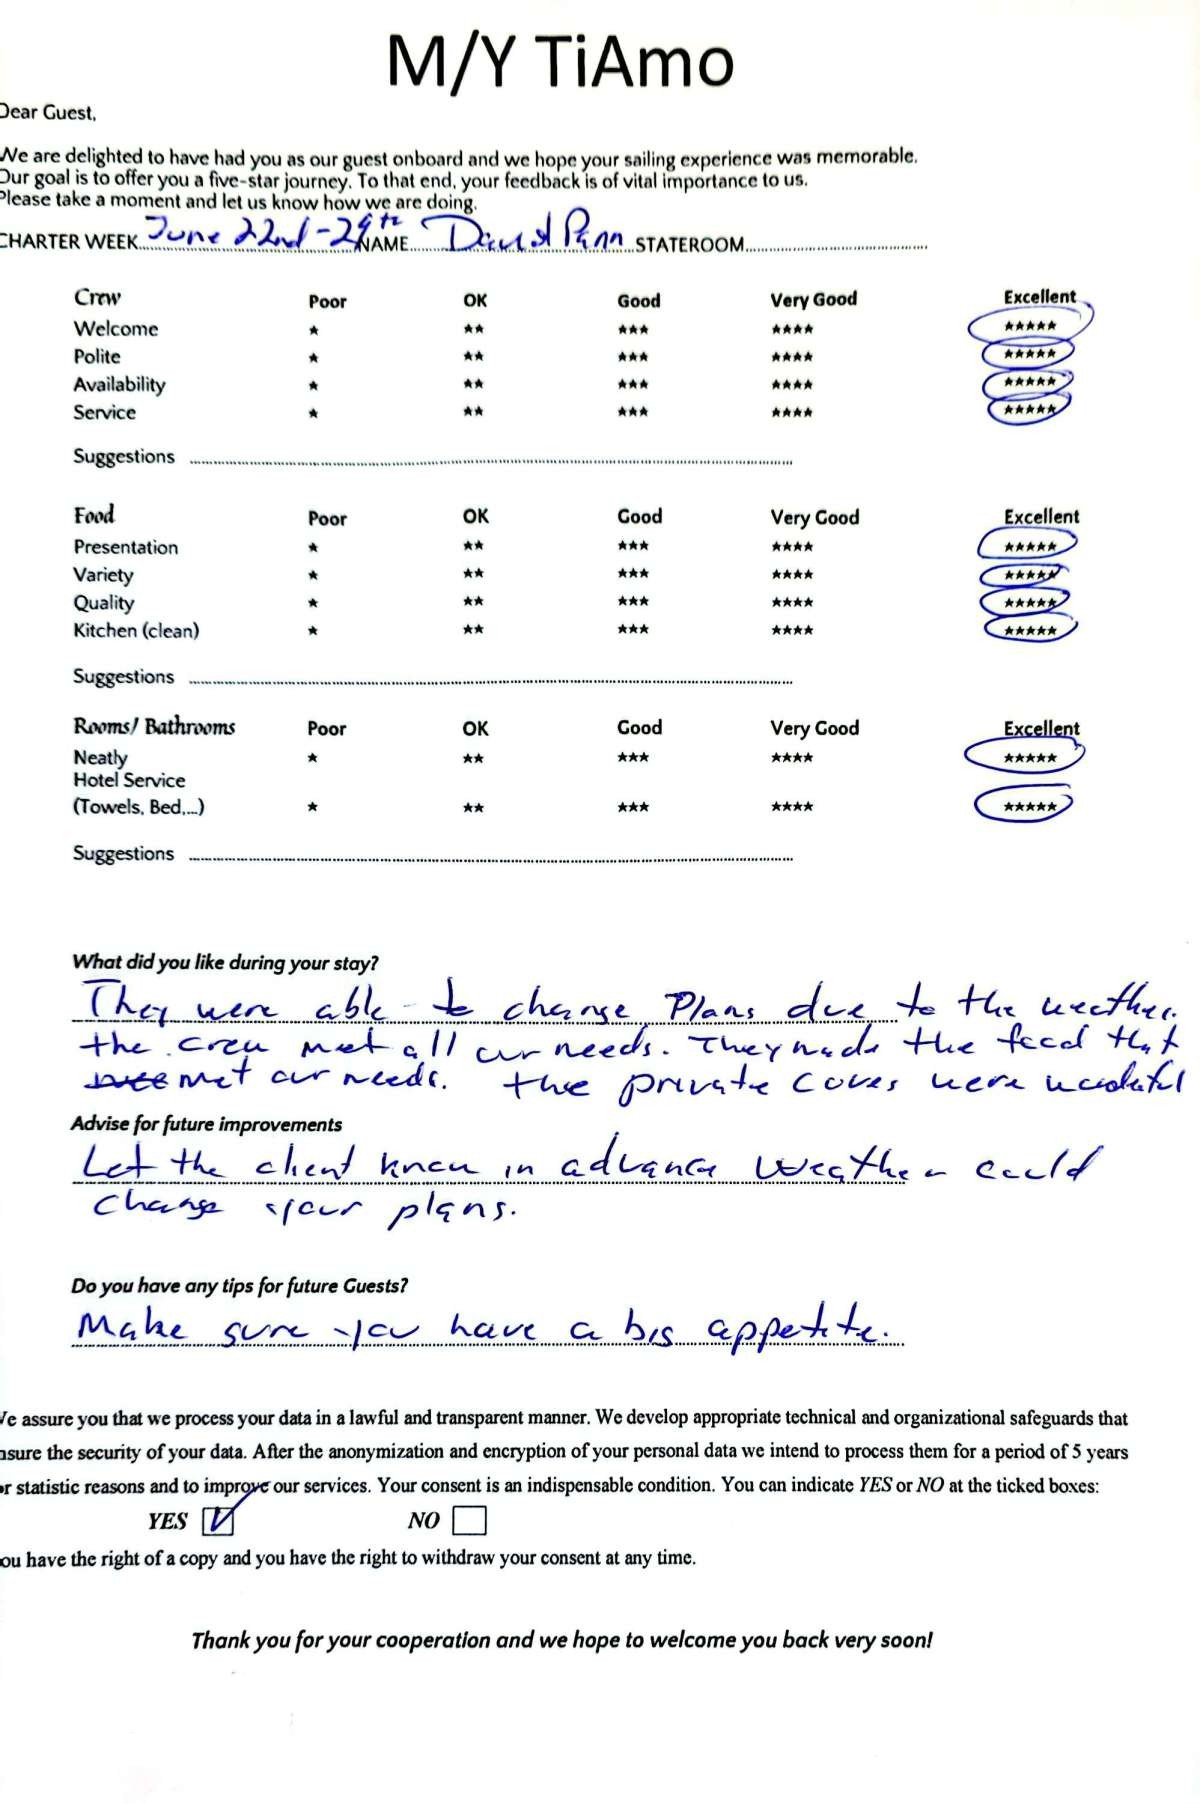 M/Y TiAmo
Dear Guest,
We are delighted to have had you as our guest onboard and we hope your sailing experience was memorable.
Our goal is to offer you a five-star journey. To that end, your feedback is of vital importance to us.
Please take a moment and let us know how we are doing.
CHARTER WEEK June 22nd - 29th NAME David STATEROOM
Crew Poor OK Good Very Good Excellent
Welcome ★ ★★ ★★★ ★★★★ ★★★★★
Polite ★ ★★ ★★★ ★★★★ ★★★★★
Availability ★ ★★ ★★★ ★★★★ ★★★★★
Service ★ ★★ ★★★ ★★★★ ★★★★★
Suggestions
Food Poor OK Good Very Good Excellent
Presentation ★ ★★ ★★★ ★★★★ ★★★★★
Variety ★ ★★ ★★★ ★★★★ ★★★★★
Quality ★ ★★ ★★★ ★★★★ ★★★★★
Kitchen (clean) ★ ★★ ★★★ ★★★★ ★★★★★
Suggestions
Rooms/ Bathrooms Poor OK Good Very Good Excellent
Neatly ★ ★★ ★★★ ★★★★ ★★★★★
Hotel Service
(Towels, Bed,...) ★ ★★ ★★★ ★★★★ ★★★★★
Suggestions
What did you like during your stay?
They were able to change Plans due to the weather.
the crew met all our needs. They made the food that
met our needs. the private coves were wonderful
Advise for future improvements
Let the client know in advance weather could
change your plans.
Do you have any tips for future Guests?
Make sure you have a big appetite.
We assure you that we process your data in a lawful and transparent manner. We develop appropriate technical and organizational safeguards that
ensure the security of your data. After the anonymization and encryption of your personal data we intend to process them for a period of 5 years
for statistic reasons and to improve our services. Your consent is an indispensable condition. You can indicate YES or NO at the ticked boxes:
YES NO
You have the right of a copy and you have the right to withdraw your consent at any time.
Thank you for your cooperation and we hope to welcome you back very soon!